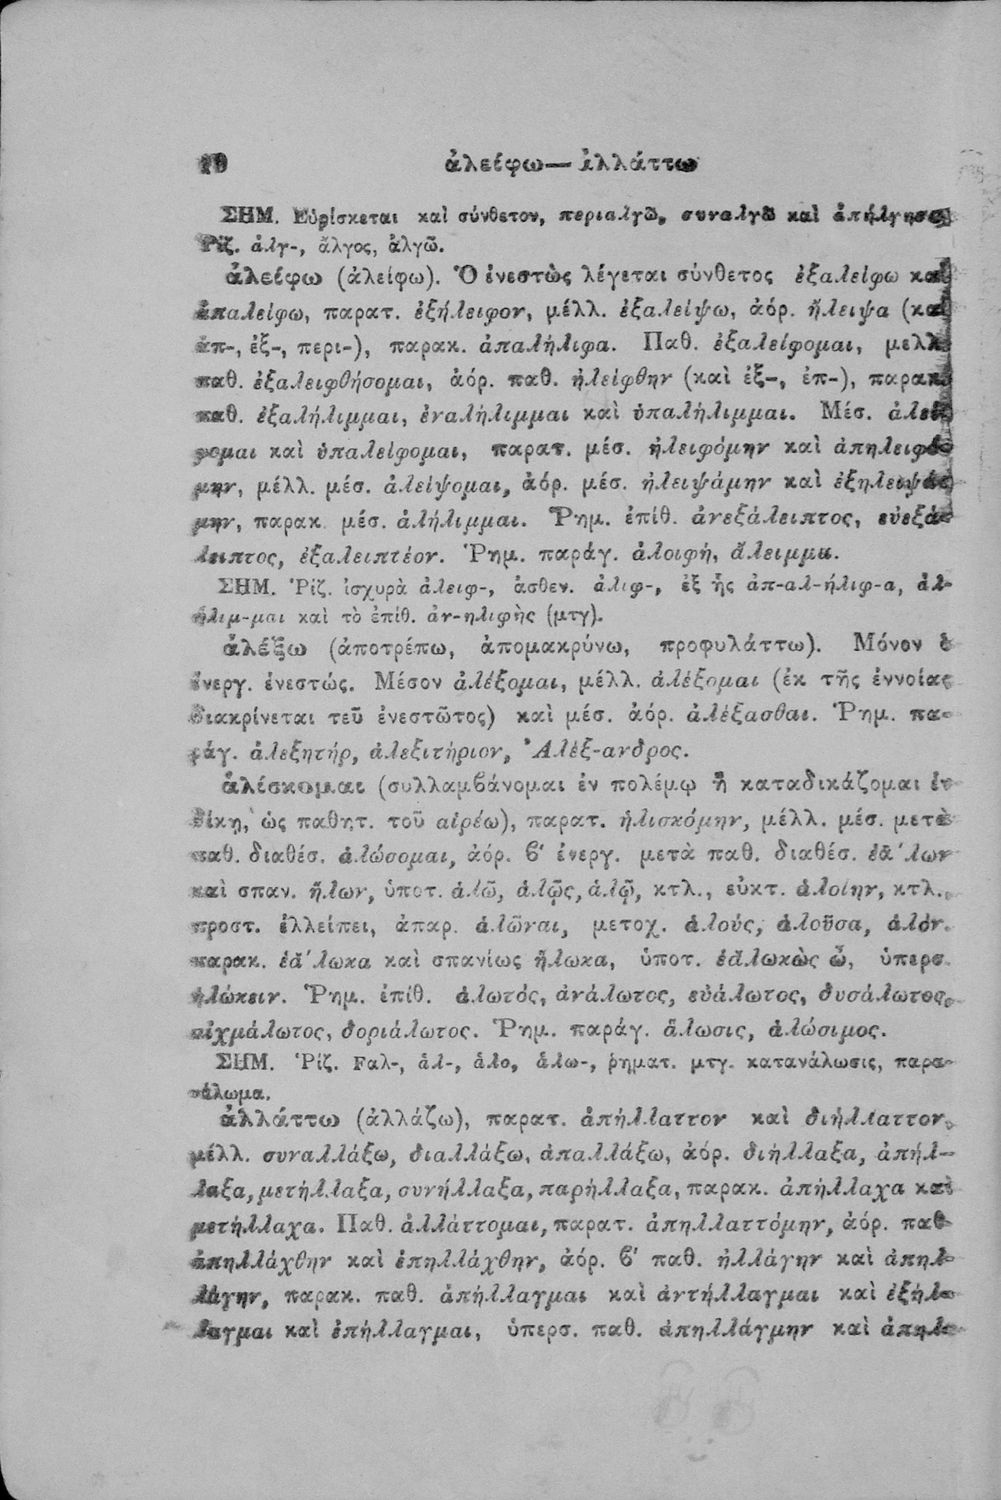 10 ἀλείφω — ἀλλάττω
ΣΗΜ. Εὑρίσκεται καὶ σύνθετον, περιαλγῶ, συναλγῶ καὶ ἀπήλγησα,
Ῥίζ. ἀλγ-, ἄλγος, ἀλγῶ.
ἀλείφω (ἀλείφω). Ὁ ἐνεστὼς λέγεται σύνθετος ἐξαλείφω καὶ
ἀπαλείφω, παρατ. ἐξήλειφον, μέλλ. ἐξαλείψω, ἀόρ. ἤλειψα (καὶ
ἀπ-, ἐξ-, περι-), παρακ. ἀπαλήλιφα. Παθ. ἐξαλείφομαι, μελλ.
παθ. ἐξαλειφθήσομαι, ἀόρ. παθ. ἠλείφθην (καὶ ἐξ-, ἐπ-), παρακ.
παθ. ἐξαλήλιμμαι, ἐναλήλιμμαι καὶ ὑπαλήλιμμαι. Μέσ. ἀλεί-
φομαι καὶ ὑπαλείφομαι, παρατ. μέσ. ἠλειφόμην καὶ ἀπηλειφό-
μην, μέλλ. μέσ. ἀλείψομαι, ἀόρ. μέσ. ἠλειψάμην καὶ ἐξηλειψά-
μην, παρακ. μέσ. ἀλήλιμμαι. Ῥημ. ἐπίθ. ἀνεξάλειπτος, εὐεξά-
λειπτος, ἐξαλειπτέον. Ῥημ. παράγ. ἀλοιφή, ἄλειμμα.
ΣΗΜ. Ῥίζ. ἰσχυρὰ ἀλειφ-, ἀσθεν. ἀλιφ-, ἐξ ἧς ἀπ-αλ-ήλιφ-α, ἀλ-
ήλιμ-μαι καὶ τὸ ἐπίθ. ἀν-ηλιφὴς (μτγ).
ἀλέξω (ἀποτρέπω, ἀπομακρύνω, προφυλάττω). Μόνον ὁ
ἐνεργ. ἐνεστώς. Μέσον ἀλέξομαι, μέλλ. ἀλέξομαι (ἐκ τῆς ἐννοίας
διακρίνεται τοῦ ἐνεστῶτος) καὶ μέσ. ἀόρ. ἀλέξασθαι. Ῥημ. πα-
ράγ. ἀλεξητήρ, ἀλεξιτήριον, Ἀλέξ-ανδρος.
ἁλίσκομαι (συλλαμβάνομαι ἐν πολέμῳ ἢ καταδικάζομαι ἐν
δίκῃ, ὡς παθητ. τοῦ αἱρέω), παρατ. ἡλισκόμην, μέλλ. μέσ. μετὰ
παθ. διαθέσ. ἁλώσομαι, ἀόρ. β' ἐνεργ. μετὰ παθ. διαθέσ. ἑά̄λων
καὶ σπαν. ἥλων, ὑποτ. ἁλῶ, ἁλῷς, ἁλῷ, κτλ., εὐκτ. ἁλοίην, κτλ.,
προστ. ἐλλείπει, ἀπαρ. ἁλῶναι, μετοχ. ἁλούς, ἁλοῦσα, ἁλόν.
παρακ. ἑά̄λωκα καὶ σπανίως ἥλωκα, ὑποτ. ἑᾱλωκὼς ὦ, ὑπερσ.
ἡλώκειν. Ῥημ. ἐπίθ. ἁλωτός, ἀνάλωτος, εὐάλωτος, δυσάλωτος,
αἰχμάλωτος, δοριάλωτος. Ῥημ. παράγ. ἅλωσις, ἁλώσιμος.
ΣΗΜ. Ῥίζ. Fαλ-, ἁλ-, ἁλο, ἁλω-, ῥηματ. μτγ. κατανάλωσις, παρα-
νάλωμα.
ἀλλάττω (ἀλλάζω), παρατ. ἀπήλλαττον καὶ διήλλαττον,
μέλλ. συναλλάξω, διαλλάξω, ἀπαλλάξω, ἀόρ. διήλλαξα, ἀπήλ-
λαξα, μετήλλαξα, συνήλλαξα, παρήλλαξα, παρακ. ἀπήλλαχα καὶ
μετήλλαχα. Παθ. ἀλλάττομαι, παρατ. ἀπηλλαττόμην, ἀόρ. παθ.
ἀπηλλάχθην καὶ ἐπηλλάχθην, ἀόρ. β' παθ. ἠλλάγην καὶ ἀπηλ-
λάγην, παρακ. παθ. ἀπήλλαγμαι καὶ ἀντήλλαγμαι καὶ ἐξήλ-
λαγμαι καὶ ἐπήλλαγμαι, ὑπερσ. παθ. ἀπηλλάγμην καὶ ἀπηλ-